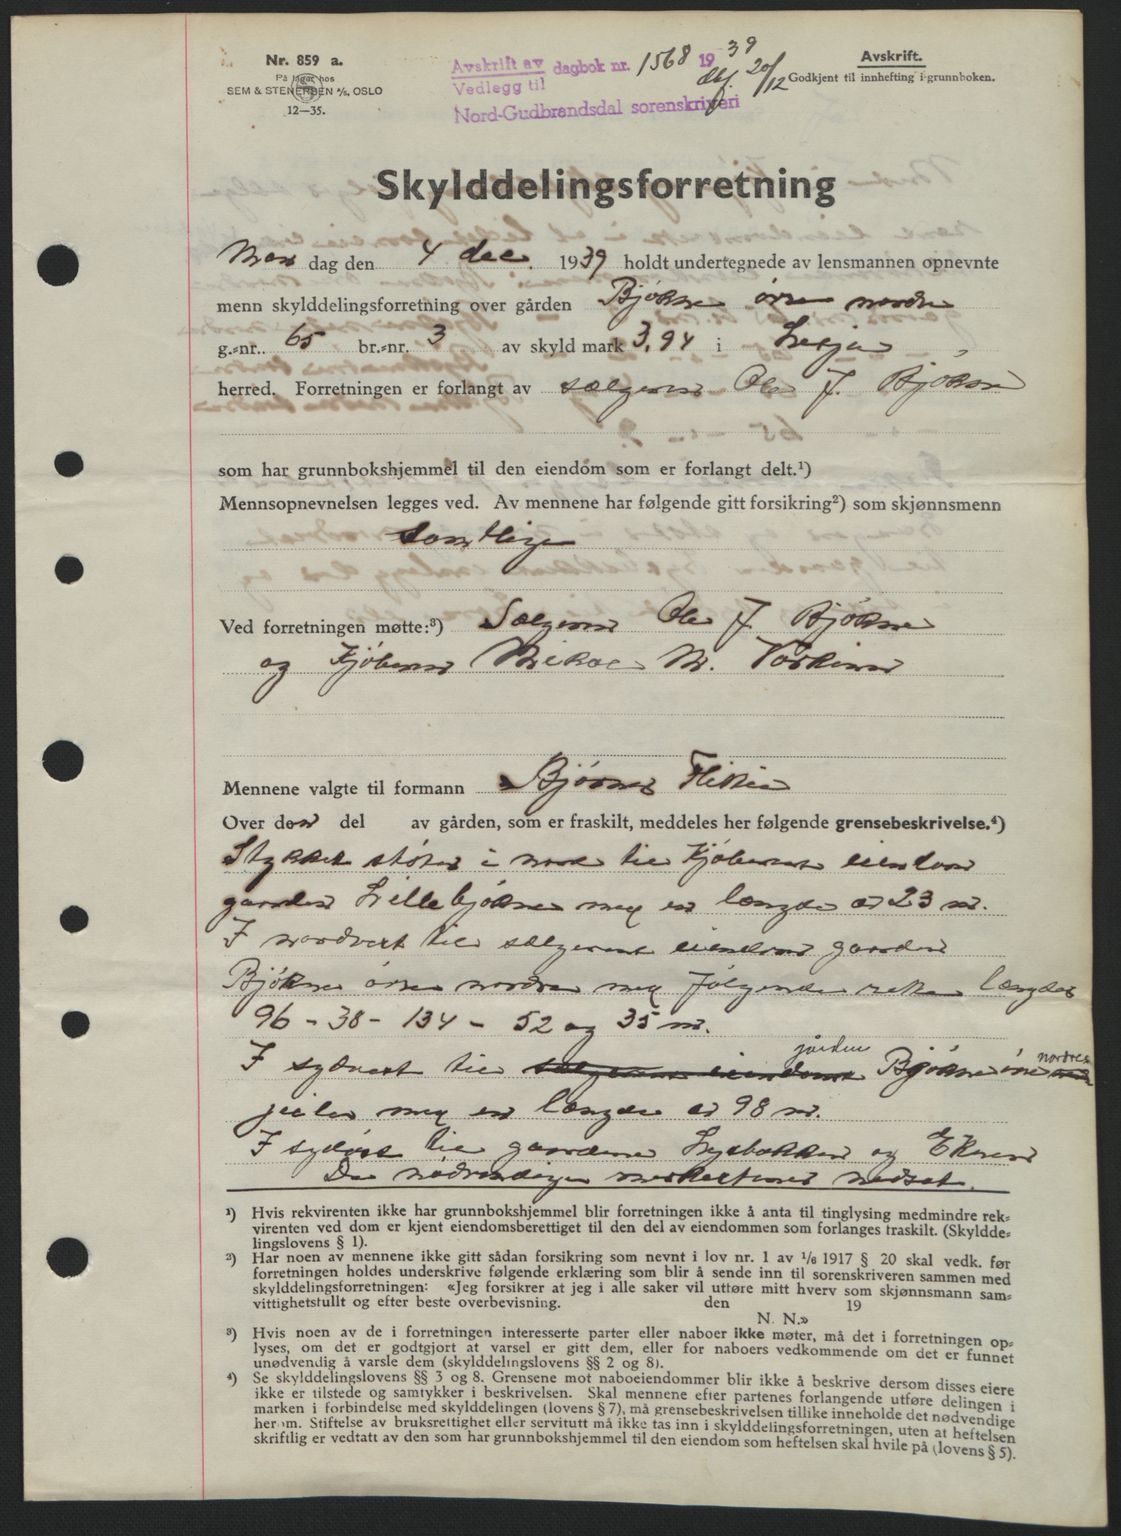 Nr. 859 a.
På lager hos
SEM & STENERSEN A/S, OSLO
12—35.
Avskrift av dagbok nr. 1568 1939
Vedlegg til
Nord-Gudbrandsdal sorenskriveri
20/12
Avskrift.
Godkjent til innhefting i grunnboken.
Skylddelingsforretning
Man dag den 4 dec. 1939 holdt undertegnede av lensmannen opnevnte
menn skylddelingsforretning over gården Bjøkne øvre nordre
g.-nr. 65 br.-nr. 3 av skyld mark 3,94 i Lesja
herred. Forretningen er forlangt av sælgeren Ole J. Bjøkne
som har grunnbokshjemmel til den eiendom som er forlangt delt.¹)
Mennsopnevnelsen legges ved. Av mennene har følgende gitt forsikring²) som skjønnsmenn
samtlige
Ved forretningen møtte:³) Sælgeren Ole J. Bjøkne
og Kjøberen M.
Mennene valgte til formann Bjørner Flikie
Over den del av gården, som er fraskilt, meddeles her følgende grensebeskrivelse.⁴)
Stykket støter i nord til Kjøberens eiendom
gaarden Lillebjøkne meg en længde av 23 m.
I nordvest til sælgerens eiendom gaarden
Bjøkne øvre nordre meg følgende rette længder
96 - 38 - 134 - 52 og 35 m.
I sydvest til sælgerens eiendom gården Bjøkne øvre nordre
meg en længde av 98 m.
I sydøst til gaardene Lysbakken og Ekren
De nødvendige merkestener nedsat.
¹) Hvis rekvirenten ikke har grunnbokshjemmel blir forretningen ikke å anta til tinglysing medmindre rek-
virenten ved dom er kjent eiendomsberettiget til den del av eiendommen som forlanges fraskilt. (Skyldde-
lingslovens § 1).
²) Har noen av mennene ikke gitt sådan forsikring som nevnt i lov nr. 1 av 1/6 1917 § 20 skal vedk. før
forretningen holdes underskrive følgende erklæring som blir å sende inn til sorenskriveren sammen med
skylddelingsforretningen: «Jeg forsikrer at jeg i alle saker vil utføre mitt hverv som skjønnsmann sam-
vittighetsfullt og efter beste overbevisning. den 19
N. N.»
³) Hvis noen av de i forretningen interesserte parter eller naboer ikke møter, må det i forretningen op-
lyses, om det er godtgjort at varsel er gitt dem, eller for naboers vedkommende om det er funnet
unødvendig å varsle dem (skylddelingslovens §§ 2 og 8).
⁴) Se skylddelingslovens §§ 3 og 8. Grensene mot naboeiendommer blir ikke å beskrive dersom disses eiere
ikke er tilstede og samtykker i beskrivelsen. Skal mennene efter partenes forlangende utføre delingen i
marken i forbindelse med skylddelingen (lovens § 7), må grensebeskrivelsen tillike inneholde det nødvendige
herom. Stiftelse av bruksrettighet eller servitutt må ikke tas inn i skylddelingsforretningen, uten at heftelsen
skriftlig er vedtatt av den som har grunnbokshjemmel til den eiendom som heftelsen skal hvile på (lovens § 5).